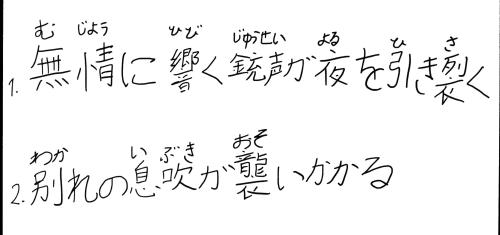 むじょう ひび じゅうせい よる ひ さ
1. 無情に響く銃声が夜を引き裂く
わか いぶき おそ
2. 別れの息吹が襲いかかる